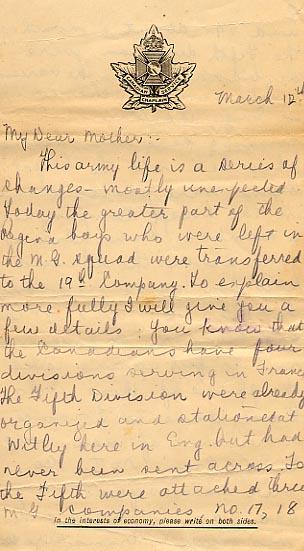 CHAPLAIN
March 12th
My Dear Mother:-
This army life is a series of
changes - mostly unexpected.
Today the greater part of the
Regina boys who were left in
the M.G. squad were transferred
to the 19th Company. To explain
more fully I will give you a
few details. You know that
the Canadians have four
divisions serving in France
The Fifth Division were already
organized and stationed at
Witley here in Eng. but had
never been sent across. To
the Fifth were attached three
M.G. Companies No. 17, 18
In the interests of economy, please write on both sides.